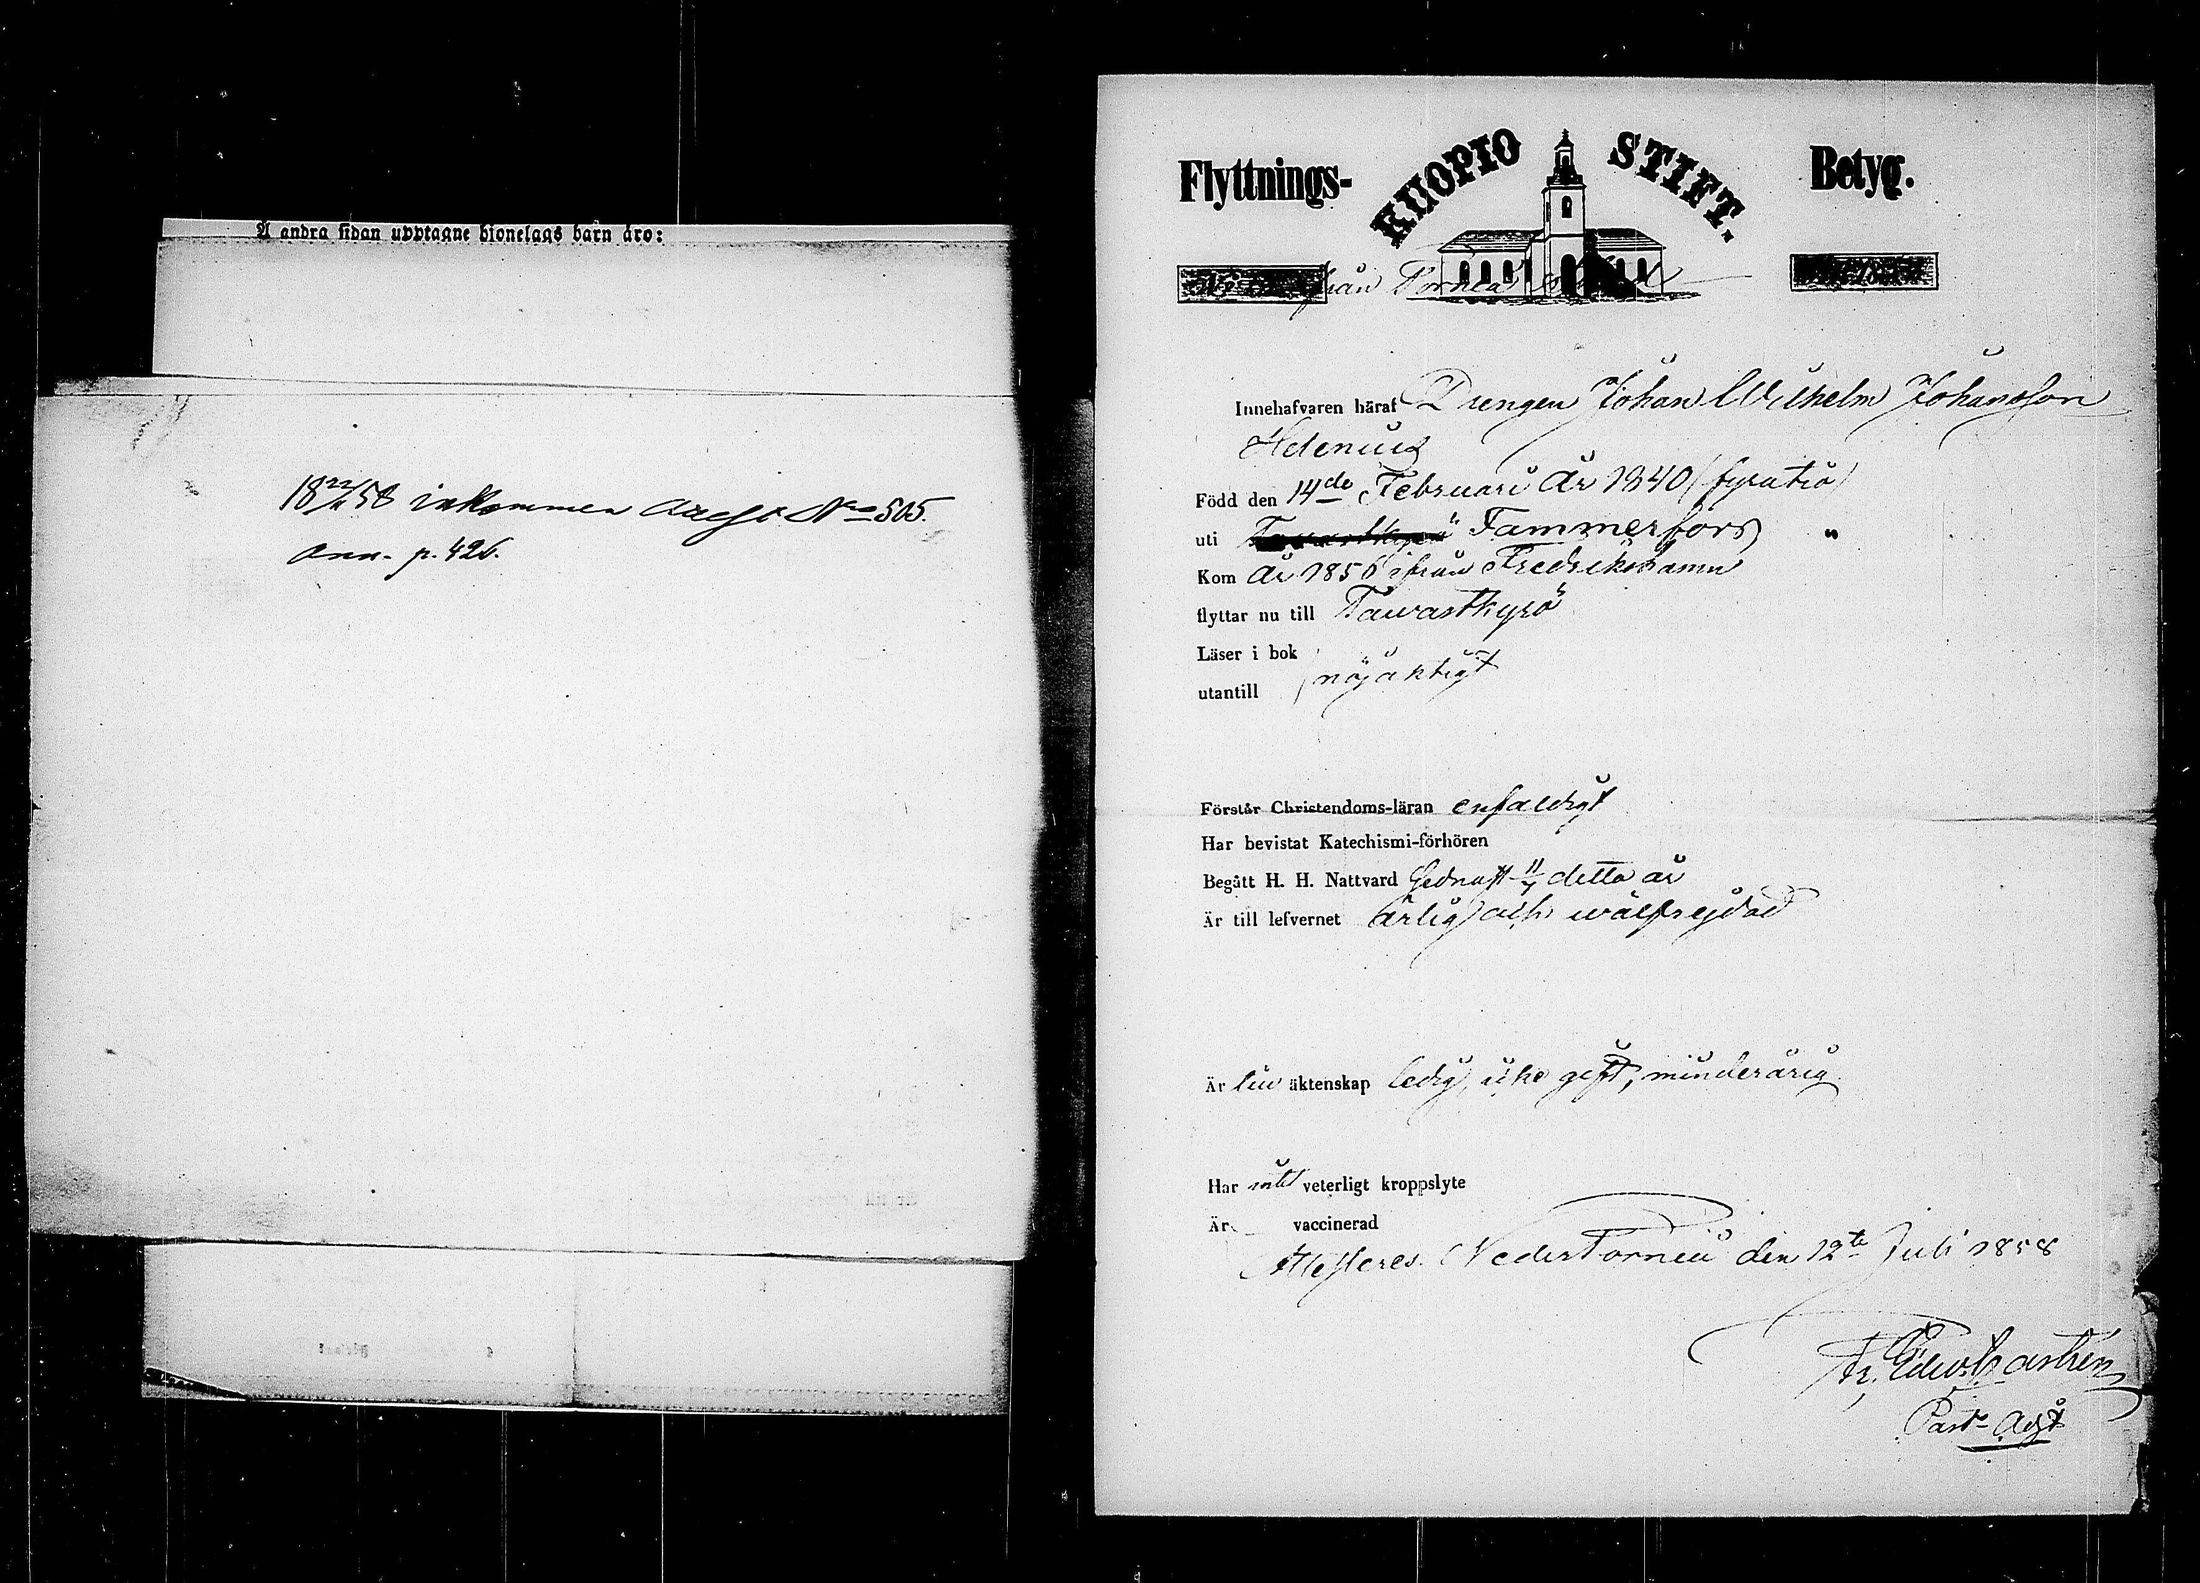 Å andra sidan upptagne hjonelags barn äro:
18 22/11 58 inkommen attest No 505.
Ann. p. 426.
Flyttnings- KUOPIO STIFT. Betyg.
från Torneå
Innehafvaren häraf Drengen Johan Wilhelm Johansson
Helenius
Född den 14de Februari År 1840 (fyratio)
uti Tammerfors "
Kom År 1856 ifrån Fredrikshamn
flyttar nu till Tavastkyrö
Läser i bok
nöjaktigt
utantill
Förstår Christendoms-läran enfaldigt
Har bevistat Katechismi-förhören
Begått H. H. Nattvard sednast detta år
Är till lefvernet ärlig och wälfrejdad
Är till äktenskap ledig, icke gift, minderårig
Har intet veterligt kroppslyte
Är vaccinerad
Attesteres. Neder Torneå den 12te Juli 1858
Fr. Edv. Castrén
Past. Adjt